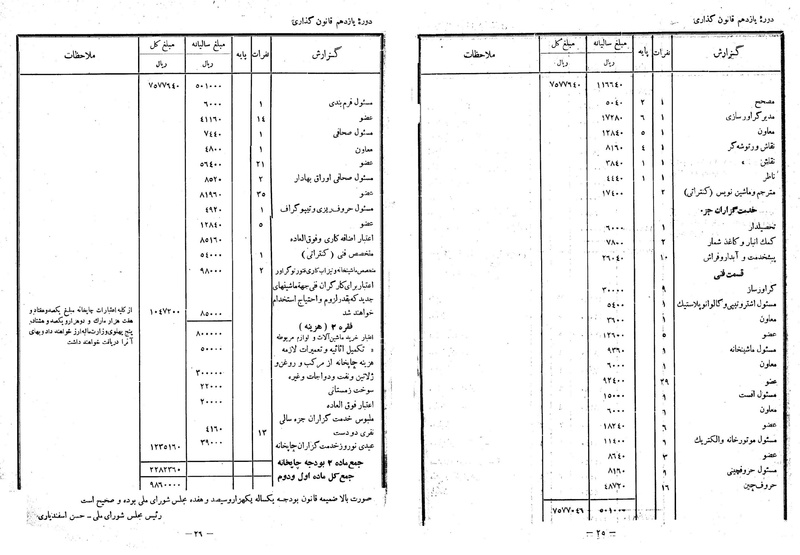 دورهٔ یازدهم قانون گذاری
گزارش نفرات پایه مبلغ سالیانه ریال مبلغ کل ریال ملاحظات
۱۱۶۶۴۰ ۷۵۷۷۶۴۰
مصحح ۱ ۲ ۵۰۴۰
مدیر گراور سازی ۱ ۶ ۱۷۲۸۰
معاون ۱ ۵ ۱۲۸۴۰
نقاش و رتوشه گر ۱ ۴ ۸۱۶۰
نقاش » ۱ ۱ ۳۸۴۰
ناظر ۱ ۱ ۴۴۴۰
مترجم و ماشین نویس (کنتراتی) ۲ ۱۷۴۰۰
خدمت گزاران جزء
تحصیلدار ۱ ۶۰۰۰
کمک انبار و کاغذ شمار ۲ ۷۸۰۰
پیشخدمت و آبدار و فراش ۱۰ ۲۶۰۴۰
قسمت فنی
گراور ساز ۹ ۳۰۰۰۰
مسئول اشتروتیپی و گالوانوپلاستیک ۱ ۵۴۰۰
معاون ۱ ۳۶۰۰
عضو ۵ ۱۲۶۰۰
مسئول ماشینخانه ۱ ۹۳۶۰
معاون ۱ ۶۰۰۰
عضو ۳۹ ۹۲۴۰۰
مسئول افست ۹ ۱۵۰۰۰
معاون ۱ ۶۰۰۰
عضو ۶ ۱۸۲۴۰
مسئول موتورخانه و الکتریک ۹ ۱۱۴۰۰
عضو ۳ ۸۶۴۰
مسئول حروفچینی ۹ ۸۱۶۰
حروف چین ۱۶ ۴۸۷۲۰
۵۰۱۰۰۰ ۷۵۷۷۰۴۶
— ۲۵ —
دورهٔ یازدهم قانون گذاری
گزارش نفرات پایه مبلغ سالیانه ریال مبلغ کل ریال ملاحظات
۵۰۱۰۰۰ ۷۵۷۷۶۴۰
مسئول فرم بندی ۱ ۶۰۰۰
عضو ۱۴ ۴۱۱۶۰
مسئول صحافی ۱ ۷۴۴۰
معاون ۱ ۴۸۰۰
عضو ۲۱ ۵۶۴۰۰
مسئول صحافی اوراق بهادار ۲ ۸۵۲۰
عضو ۳۵ ۸۱۹۶۰
مسئول حروف ریزی و تیپوگراف ۱ ۴۹۲۰
عضو ۵ ۱۲۸۴۰
اعتبار اضافه کاری و فوق العاده ۸۵۱۶۰
متخصص فنی (کنتراتی) ۱ ۵۴۰۰۰
متخصص ماشینخانه و تیزاب کاری فتور نوگراور ۲ ۹۸۰۰۰
اعتبار برای کارگران فنی جهة ماشینهای
جدید که بقدر لزوم و احتیاج استخدام
خواهند شد ۸۵۰۰۰ ۱۰۴۷۲۰۰
از کلیه اعتبارات چاپخانه مبلغ یکصد و هفتاد و
هفت هزار مارک و دو هزار و یکصد و هشتاد و
پنج پهلوی وزارت مالیه ارز خواهند داد و بهای
آنرا دریافت خواهند داشت
فقره ۲ (هزینه)
اعتبار خرید ماشین آلات و لوازم مربوطه ۸۰۰۰۰۰
» تکمیل اثاثیه و تعمیرات لازمه ۵۰۰۰۰
هزینه چاپخانه از مرکب و روغن و
ژلاتین و نفت و دواجات و غیره ۳۰۰۰۰۰
سوخت زمستانی ۲۲۰۰۰
اعتبار فوق العاده ۲۰۰۰۰
ملبوس خدمت گزاران جزء سالی
نفری دو دست ۴۱۶۰
عیدی نوروز خدمت گزاران چاپخانه ۱۳ ۳۹۰۰۰ ۱۲۳۵۱۶۰
جمع ماده ۲ بودجه چاپخانه ۲۲۸۲۳۶۰
جمع کل ماده اول و دوم ۹۸۶۰۰۰۰
صورت بالا ضمیمه قانون بودجه یکساله یکهزار و سیصد و هفده مجلس شورای ملی بوده و صحیح است
رئیس مجلس شورای ملی ـ حسن اسفندیاری
— ۲۶ —